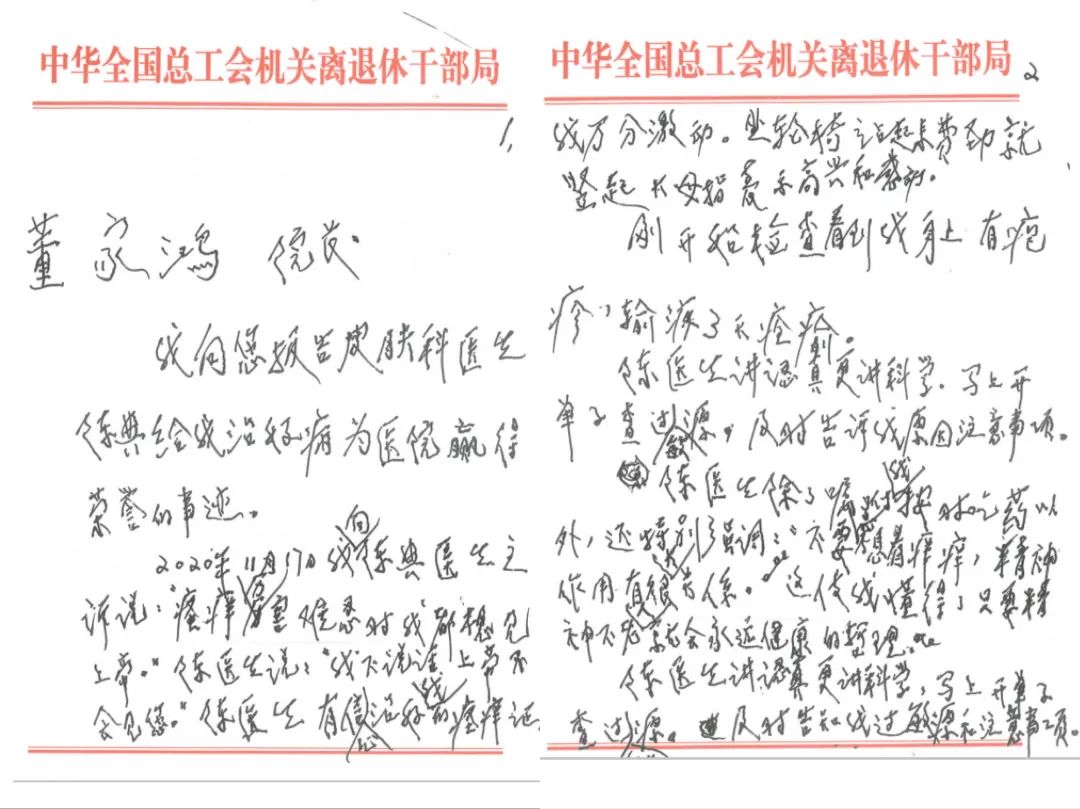 中华全国总工会机关离退休干部局
1,
董家鸿 院长.
我向您报告皮肤科医生
陈典给我治好病为医院赢得
荣誉的事迹。
2020年11月17日我向陈典医生主
诉说:“瘙痒厉害难忍时我都想见
上帝。”陈医生说:“我不说话上帝不
会见您。”陈医生有信心治好我的瘙痒证
中华全国总工会机关离退休干部局
2
我万分激动。坐轮椅站起来费劲就
竖起大母指表示高兴和感动。
刚开始检查看到我身上有疱
疹,输液了
陈医生讲认真更讲科学。马上开
单子查过敏源,及时告诉我原因注意事项。
陈医生除了嘱咐我按时吃药以
外,还特别强调:“不要想着痒痒,精神
作用有很大关系。”这使我懂得了只要精
神不老就会永远健康的哲理。
陈医生讲认真更讲科学,马上开单子
查过敏源。及时告知我过敏源和注意事项。